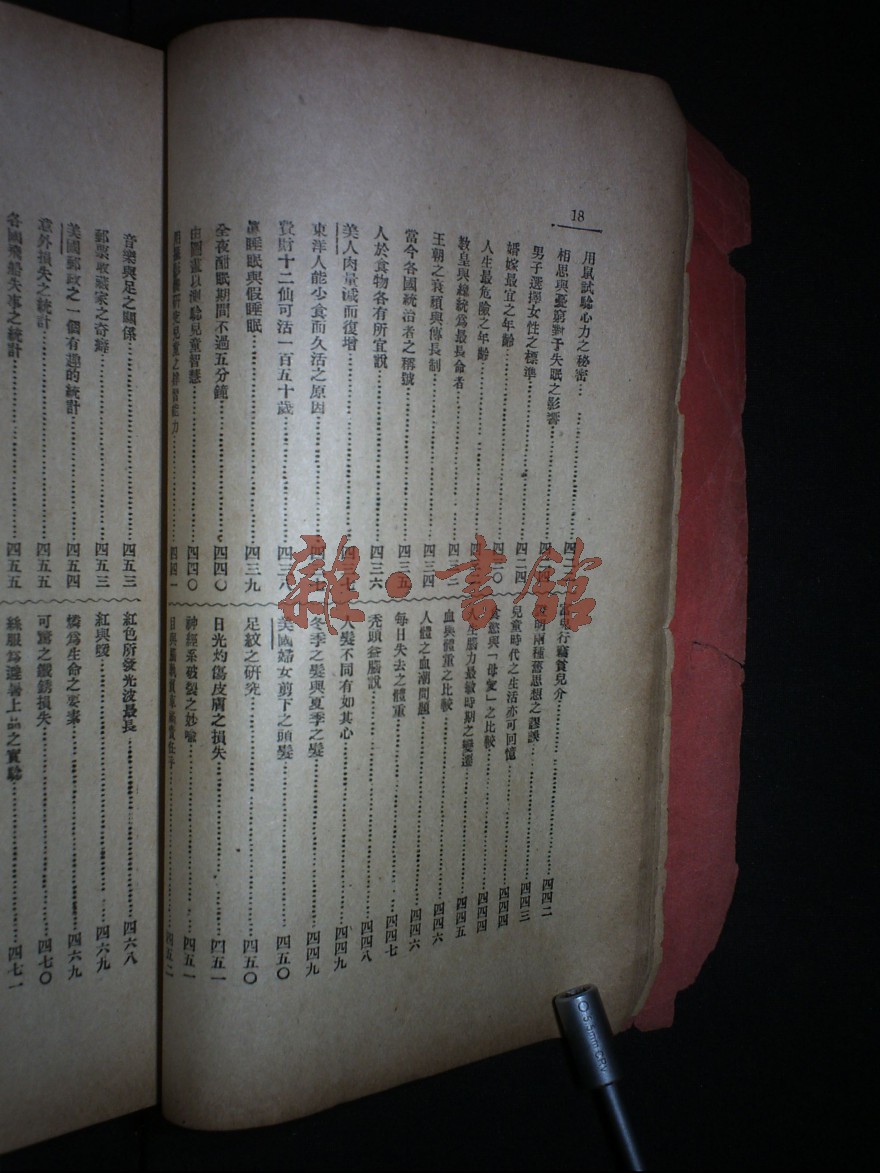 18
用鼠試驗心力之秘密
相思與憂窮對于失眠之影響
男子選擇女性之標準……四二四
婚嫁最宜之年齡
人生最危險之年齡
教皇與總統爲最長命者
王朝之衰頹與傳長制……四三四
當今各國統治者之稱號……四三五
人於食物各有所宜說……四三六
美人肉量減而復增……四三七
東洋人能少食而久活之原因
費財十二仙可活一百五十歲……四三六
眞睡眠與假睡眠……四三九
全夜酣眠期間不過五分鐘……四四〇
由圖畫以測驗兒童智慧……四四〇
……四四一
富兒行竊貧兒介……四四二
兩種舊思想之謬誤……四四三
兒童時代之生活亦可回憶……四四四
「母愛」之比較……四四四
人生腦力最敏時期之變遷……四四五
血與體重之比較……四四六
人體之血潮問題……四四六
每日失去之體重……四四七
禿頭益腦說……四四八
人髮不同有如其心……四四九
冬季之髮與夏季之髮……四四九
美國婦女剪下之頭髮……四五〇
足紋之研究……四五〇
日光灼傷皮膚之損失……四五一
神經系破裂之妙喻……四五一
……四五二
音樂與足之關係……四五三
郵票收藏家之奇癖……四五三
美國郵政之一個有趣的統計……四五四
意外損失之統計……四五五
各國飛船失事之統計……四五五
紅色所發光波最長……四六八
紅與煖……四六九
燐爲生命之要素……四六九
可驚之鐵銹損失……四七〇
絲服爲避暑上品之實驗……四七一
雜·書館
5.5mm CRV